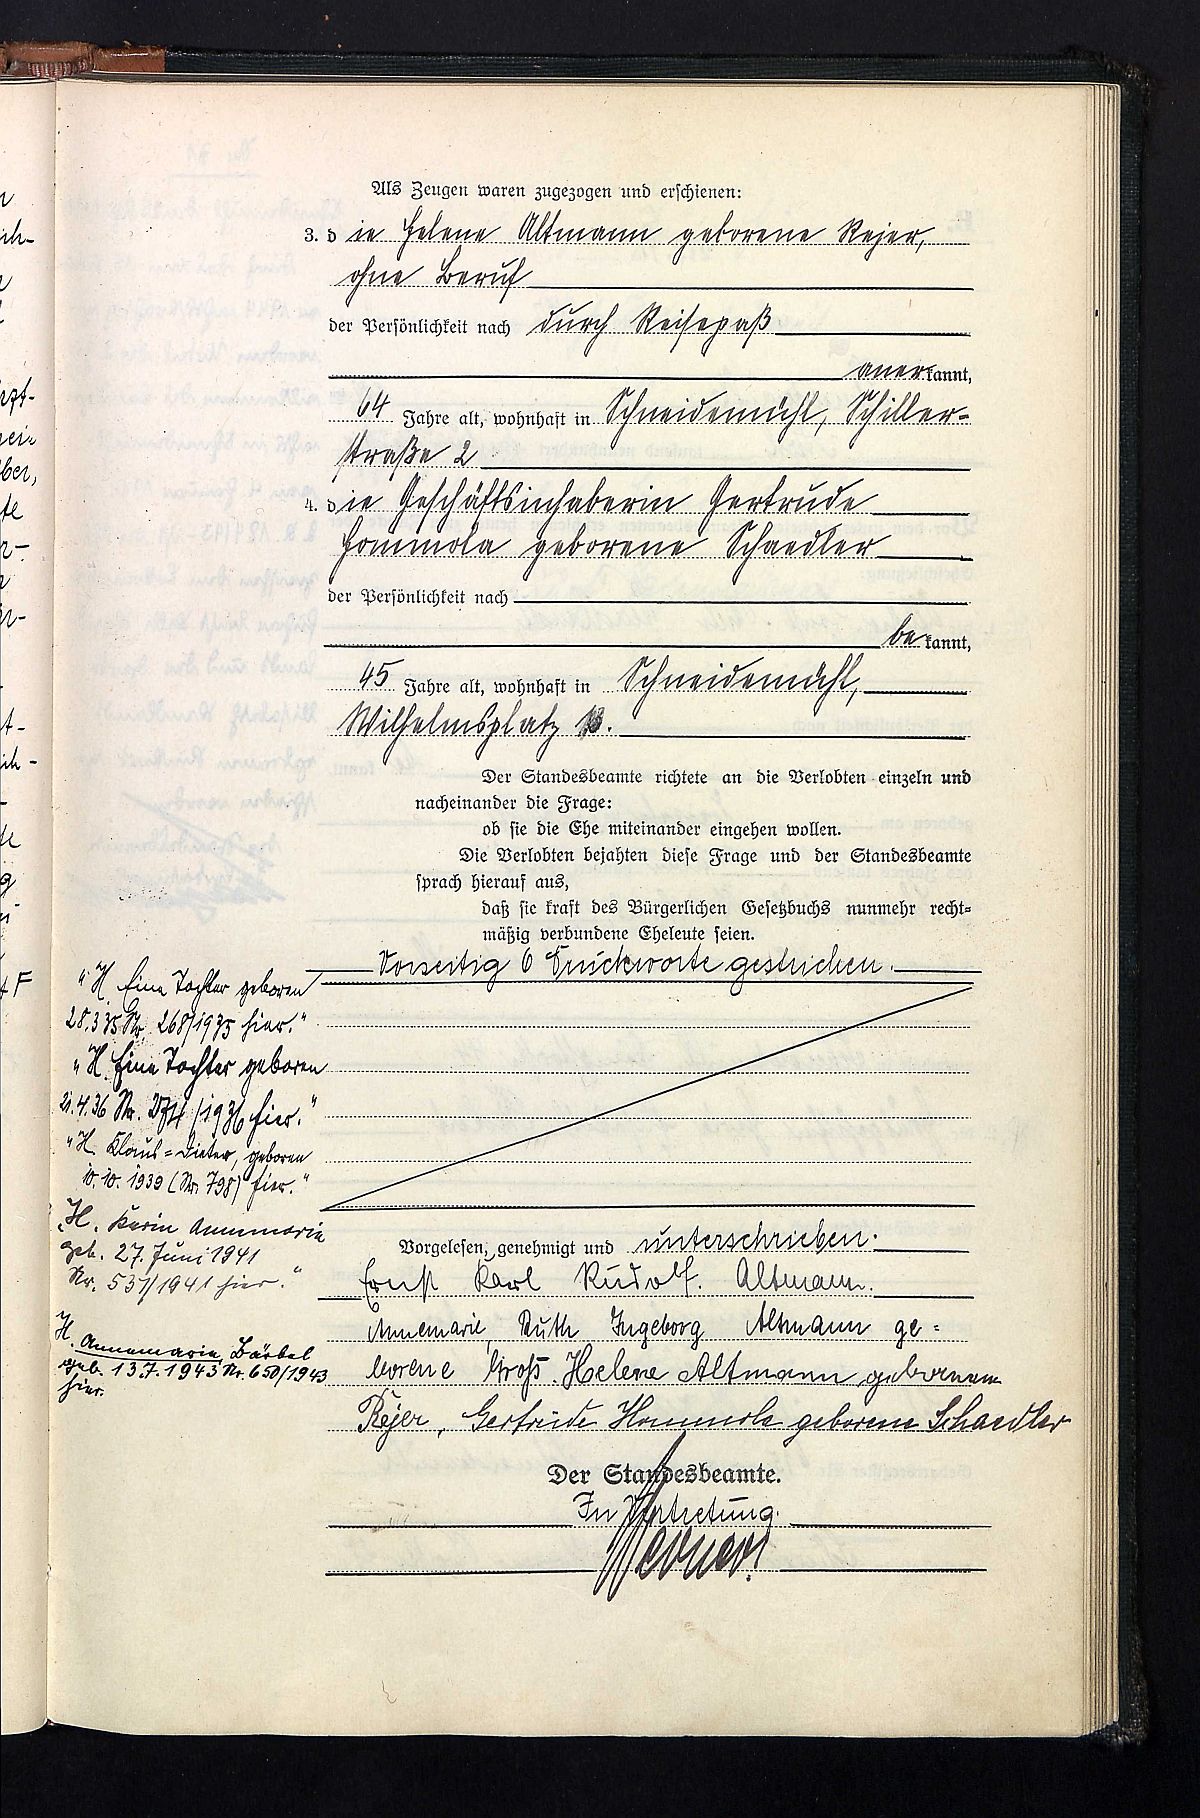 Als Zeugen waren zugezogen und erschienen:
3. d ie Helene Altmann geborene Rejer,
ohne Beruf
der Persönlichkeit nach durch Reisepaß
anerkannt,
64 Jahre alt, wohnhaft in Schneidemühl, Schiller-
straße 2
4. die Geschäftsinhaberin Gertrude
Hommola geborene Schaedler
der Persönlichkeit nach
bekannt,
45 Jahre alt, wohnhaft in Schneidemühl,
Wilhelmsplatz
Der Standesbeamte richtete an die Verlobten einzeln und
nacheinander die Frage:
ob sie die Ehe miteinander eingehen wollen.
Die Verlobten bejahten diese Frage und der Standesbeamte
sprach hierauf aus,
daß sie kraft des Bürgerlichen Gesetzbuchs nunmehr recht=
mäßig verbundene Eheleute seien.
Vorseitig 6 Druckworte gestrichen.
Vorgelesen, genehmigt und unterschrieben.
Ernst Karl Rudolf Altmann.
Annemarie Ruth Ingeborg Altmann ge=
borene Groß. Helene Altmann geborene
Rejer, Gertrude Hommola geborene Schaedler
Der Standesbeamte.
In Vertretung.
"H. Eine Tochter geboren
28.3.35 Nr. 268/1935 hier."
"H. Eine Tochter geboren
21.4.36 Nr. /1936 hier."
"H. Klaus=Dieter, geboren
10.10.1939 (Nr. 798) hier."
"H. Karin Annemarie
geb. 27. Juni 1941
Nr. 537/1941 hier."
H. Annemarie Bärbel
geb. 13.7.1943 Nr. 650/1943
hier.